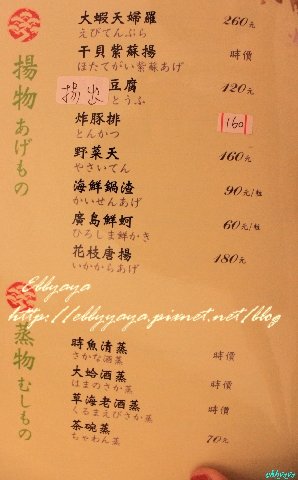 揚物 あげもの
大蝦天婦羅 260元
えびてんぷら
干貝紫蘇揚 時價
ほたてがい紫蘇あげ
揚出豆腐 120元
とうふ
炸豚排 160
とんかつ
野菜天 160元
やさいてん
海鮮鍋渣 90元/粒
かいせんあげ
廣島鮮蚵 60元/粒
ひろしま鮮かき
花枝唐揚 180元
いかからあげ
Ebbyaya
http://ebbyaya.pixnet.net/blog
蒸物 むしもの
時魚清蒸 時價
さかな酒蒸
大蛤酒蒸 時價
はまのさか蒸
草海老酒蒸 時價
くるまえびさか蒸
茶碗蒸 70元
ちゃわん蒸